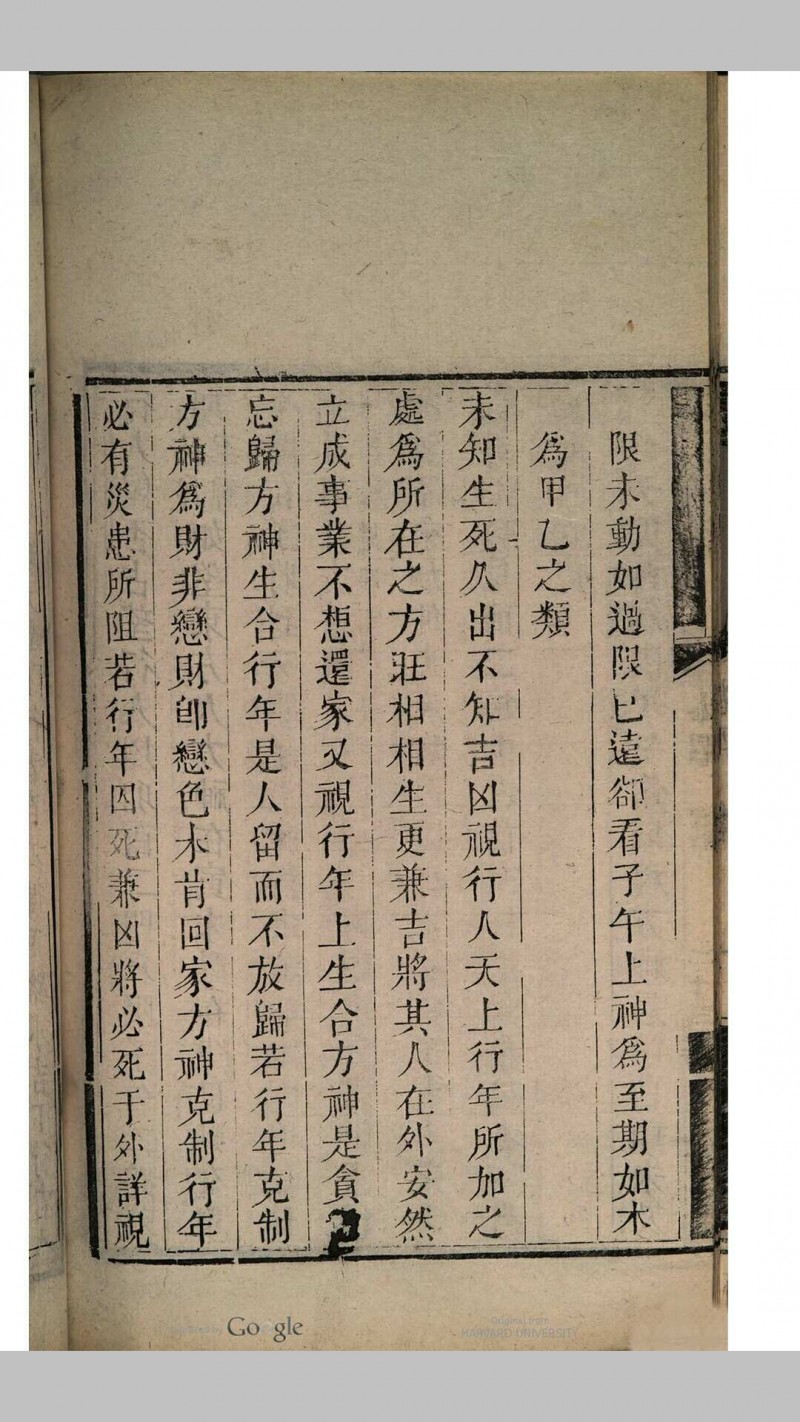 限未動如過限已遠卻看子午上神爲至期如木
爲甲乙之類
未知生死久出不知吉凶視行人天上行年所加之
處爲所在之方旺相相生更兼吉將其人在外安然
立成事業不想還家又視行年上生合方神是貪
忘歸方神生合行年是人留而不放歸若行年克制
方神爲財非戀財卽戀色未肯回家方神克制行年
必有災患所阻若行年囚死兼凶將必死于外詳視
Google
Original from
HARVARD UNIVERSITY